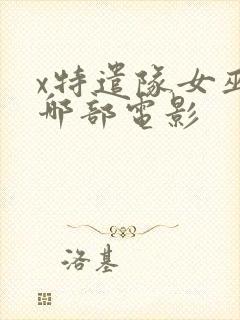 x特遣隊女巫
那部電影
洛基